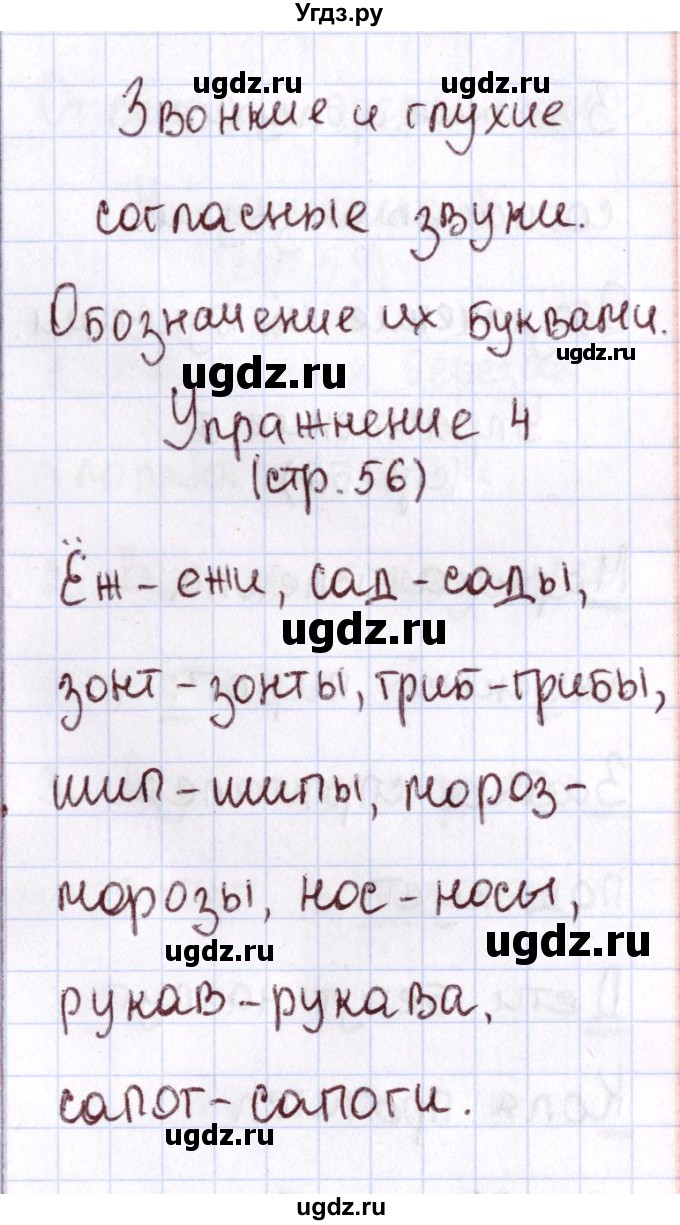 Угдз.ру
ugdz.ru ugdz.ru
Звонкие и глухие
согласные звуки.
Обозначение их буквами.
ugdz.ru
ugdz.ru
Упражнение 4
(стр. 56)
Ёж - ежи, сад - сады,
ugdz.ru
зонт - зонты, гриб - грибы,
шип - шипы, мороз -
морозы, нос - носы,
ugdz.ru ugdz.ru
рукав - рукава,
сапог - сапоги.
ugdz.ru
ugdz.ru